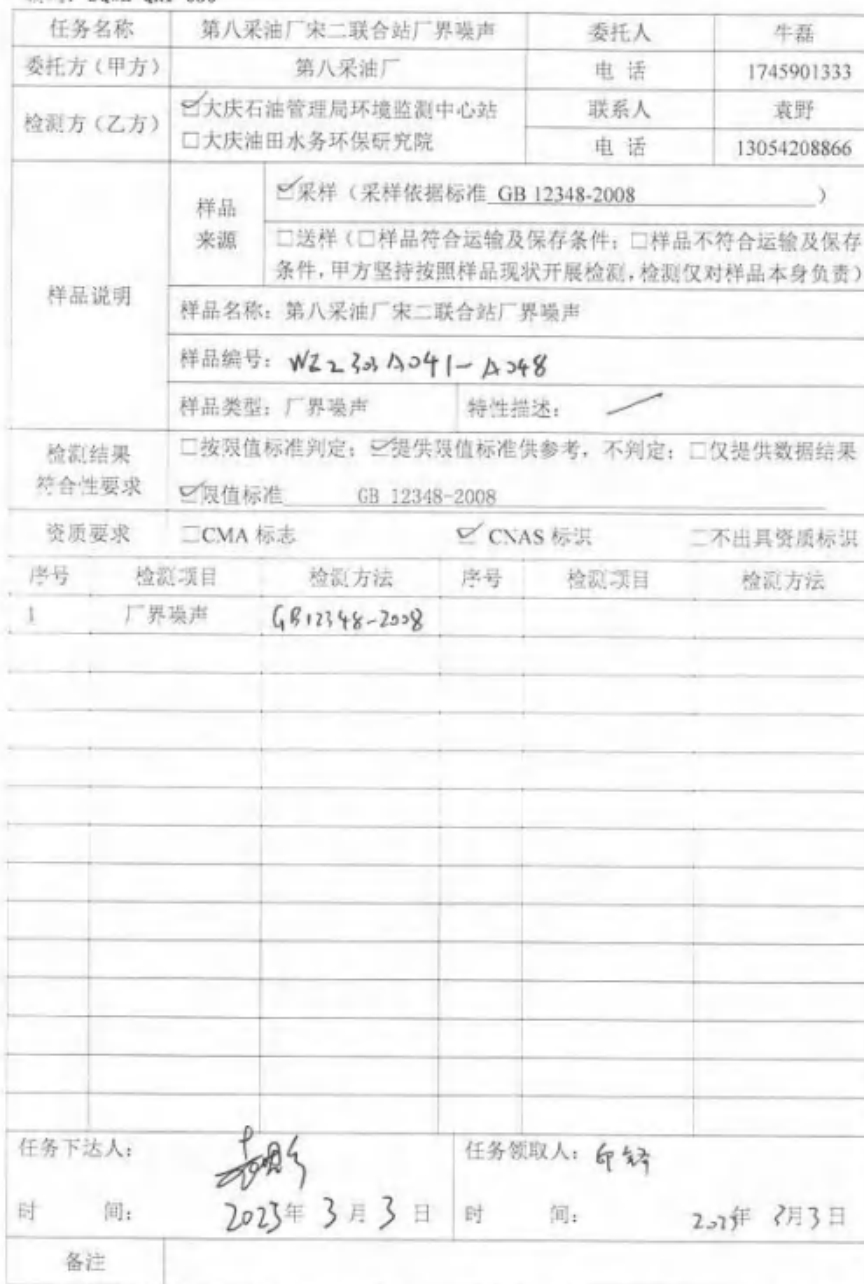 任务名称 第八采油厂宋二联合站厂界噪声 委托人 牛磊
委托方(甲方) 第八采油厂 电 话 1745901333
检测方(乙方) ☑大庆石油管理局环境监测中心站 联系人 袁野
□大庆油田水务环保研究院 电 话 13054208866
样品说明 样品来源 ☑采样(采样依据标准 GB 12348-2008 )
□送样(□样品符合运输及保存条件;□样品不符合运输及保存
条件,甲方坚持按照样品现状开展检测,检测仅对样品本身负责)
样品名称:第八采油厂宋二联合站厂界噪声
样品编号:WZ2303A041-A048
样品类型:厂界噪声 特性描述:
检测结果 □按限值标准判定;☑提供限值标准供参考,不判定;□仅提供数据结果
符合性要求 ☑限值标准 GB 12348-2008
资质要求 □CMA 标志 ☑ CNAS 标识 □不出具资质标识
序号 检测项目 检测方法 序号 检测项目 检测方法
1 厂界噪声 GB12348-2008
任务下达人: 任务领取人:
时 间: 2023年 3月 3日 时 间: 2023年 3月3日
备注